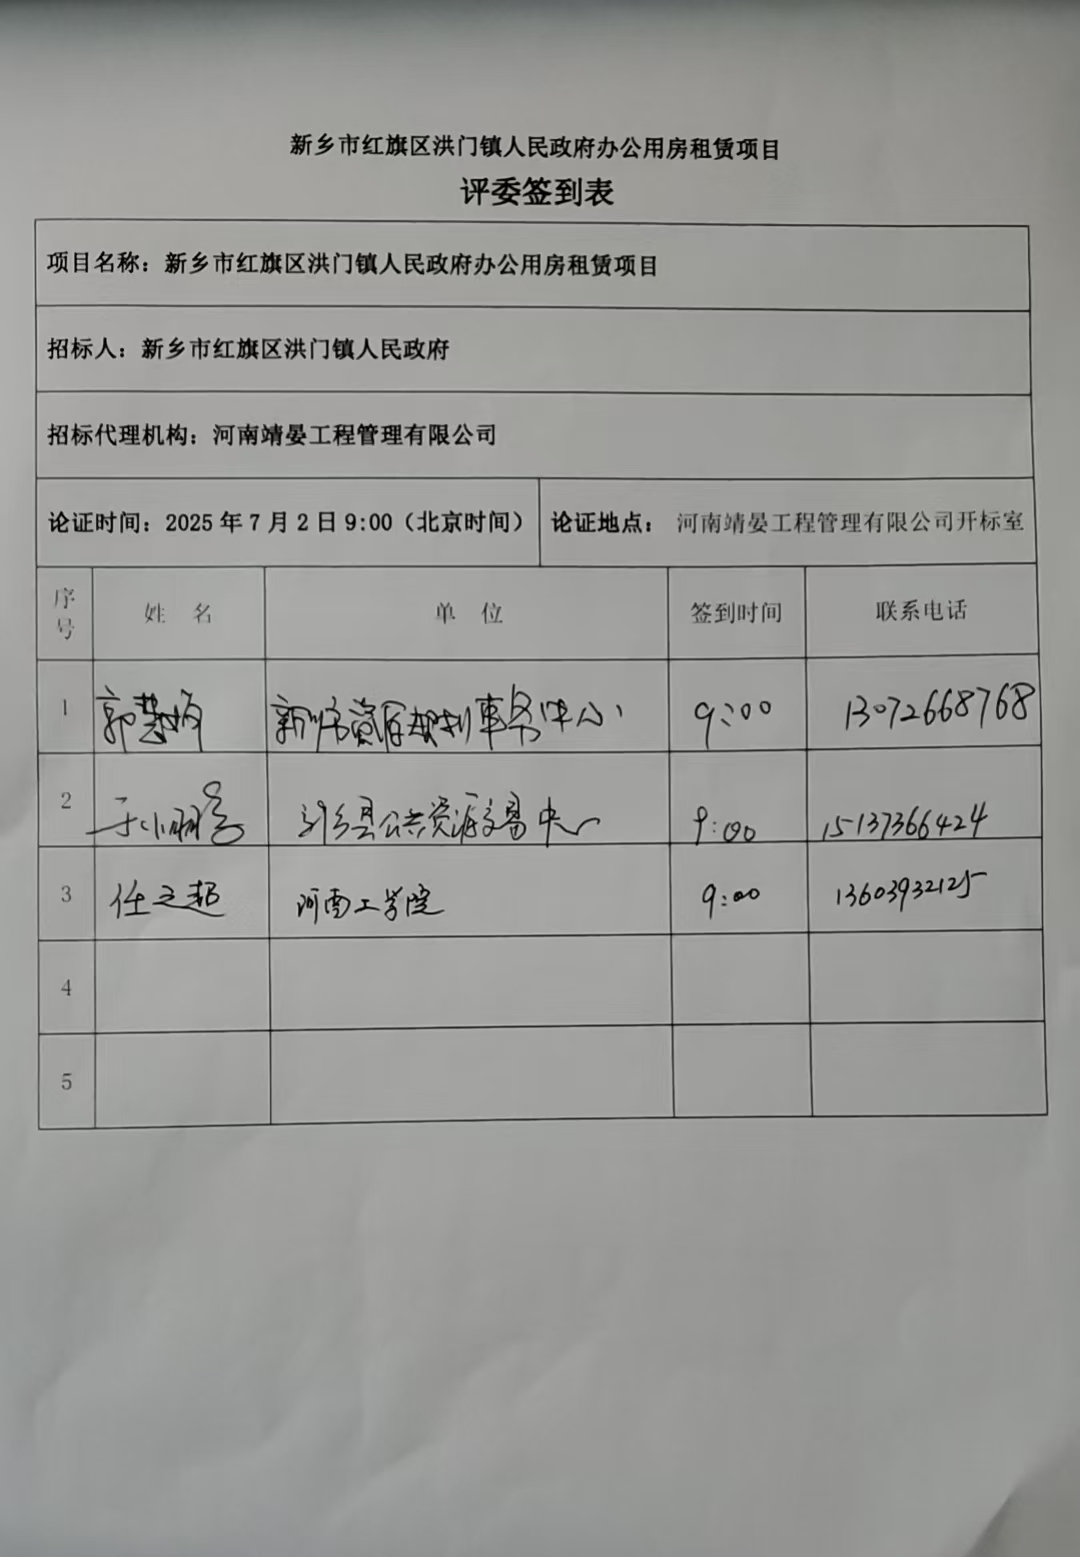 新乡市红旗区洪门镇人民政府办公用房租赁项目
评委签到表
项目名称：新乡市红旗区洪门镇人民政府办公用房租赁项目
招标人：新乡市红旗区洪门镇人民政府
招标代理机构：河南靖晏工程管理有限公司
论证时间：2025年7月2日9:00（北京时间） 论证地点： 河南靖晏工程管理有限公司开标室
序号 姓 名 单 位 签到时间 联系电话
1 郭慧 事务中心 9:00 13072668768
2 于小丽 县公共资源交易中心 9:00 15137366424
3 任之超 河南工学院 9:00 13603932125
4
5